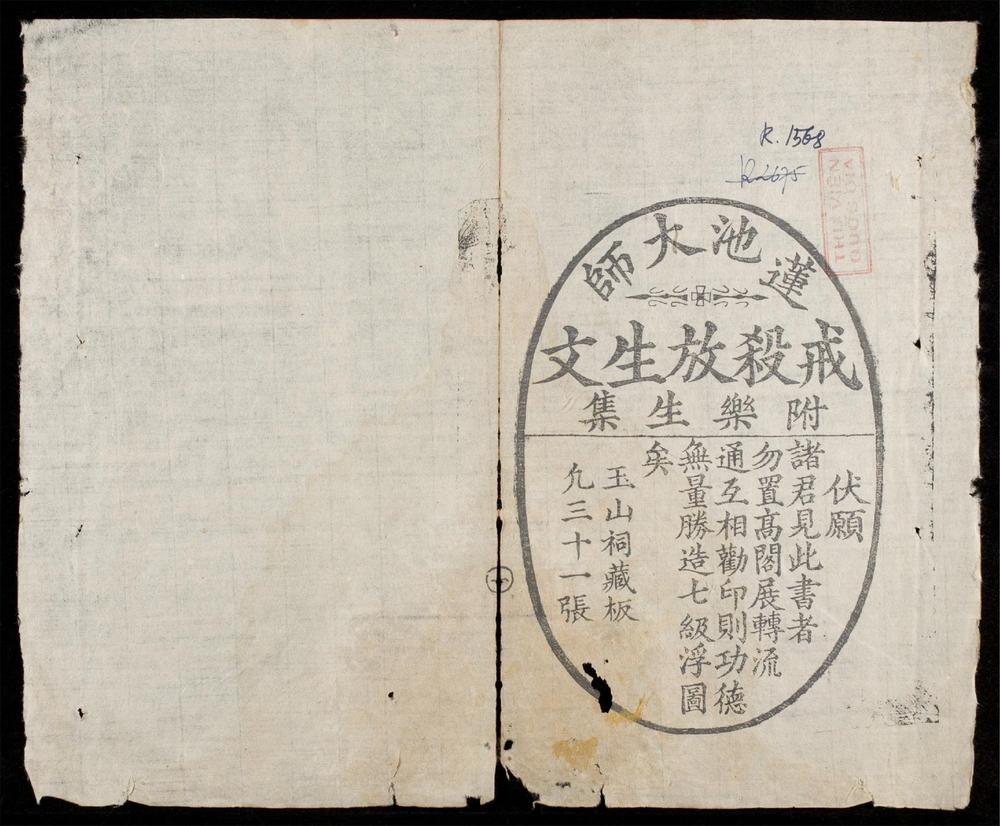 R. 1568
R 2675
THƯ VIỆN
QUỐC GIA
蓮池大師
戒殺放生文
附樂生集
伏願
諸君見此書者
勿置髙閣展轉流
通互相勸印則功德
無量勝造七級浮圖
矣
玉山祠藏板
允三十一張